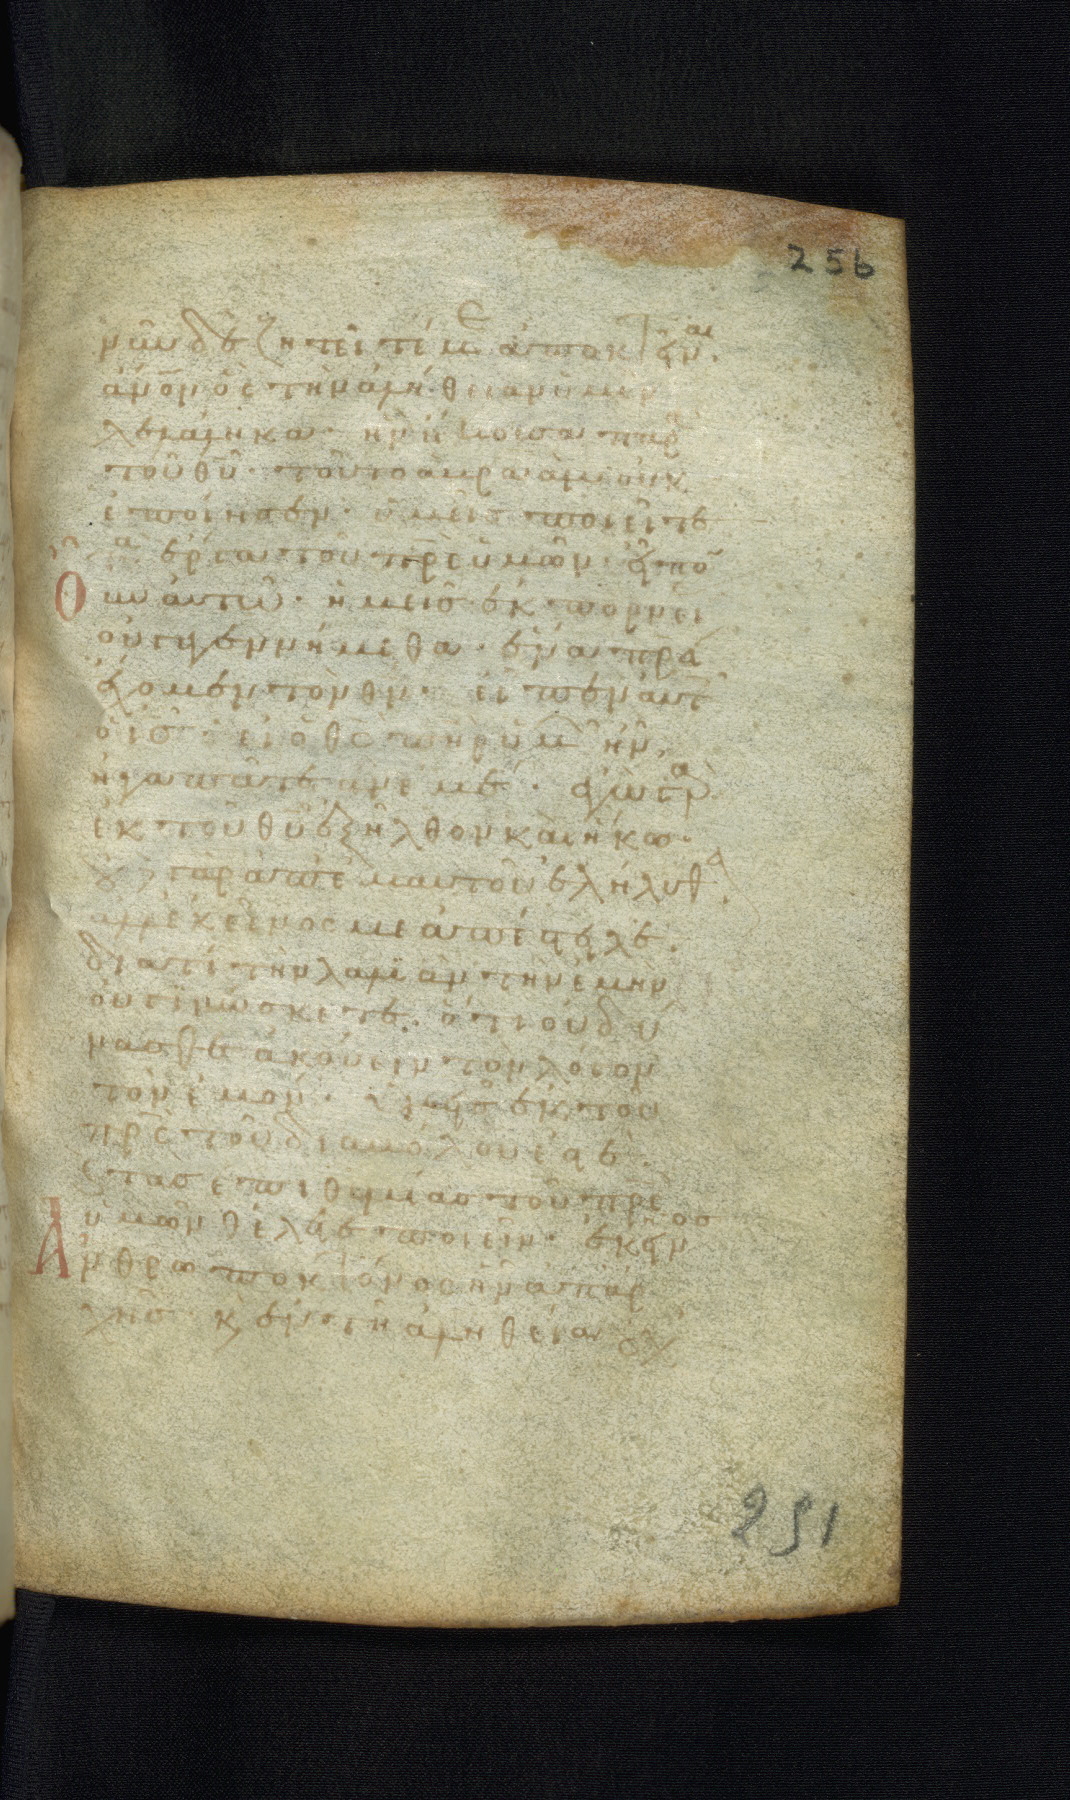 256
νῦν δὲ ζητεῖτέ με ἀποκτεῖναι.
ἄνον ὃς τὴν ἀλήθειαν ὑμῖν
λελάληκα· ἣν ἤκουσα παρὰ
τοῦ θυ· τοῦτο ἀβραὰμ οὐκ
ἐποίησεν· ὑμεῖς ποιεῖτε
τὰ ἔργα τοῦ πρς ὑμῶν· εἶπον
οὖν αὐτῷ· ἡμεῖς ἐκ πορνεί
οὐ γεγεννήμεθα· ἕνα πρα
ἔχομεν τὸν θν· εἶπεν αὐτ
ὁ ις· εἰ ὁ θς πηρ ὑμῶν ἦν,
ἠγαπᾶτε ἂν ἐμέ· ἐγὼ γὰρ
ἐκ τοῦ θυ ἐξῆλθον καὶ ἥκω·
οὐδὲ γὰρ ἀπ ἐμαυτοῦ ἐλήλυθα
ἀλλ ἐκεῖνός με ἀπέστειλε.
διατί τὴν λαλιὰν τὴν ἐμὴν
οὐ γινώσκετε· ὅτι οὐ δύ
νασθε ἀκούειν τὸν λόγον
τὸν ἐμόν· ὑμεῖς ἐκ τοῦ
πρς τοῦ διαβόλου ἐστέ.
καὶ τὰς ἐπιθυμίας τοῦ πρς
ὑμῶν θέλετε ποιεῖν· ἐκεῖνος
ἀνθρωποκτόνος ἦν ἀπ ἀρ
χῆς· κ ἐν τῇ ἀληθείᾳ οὐχ
251